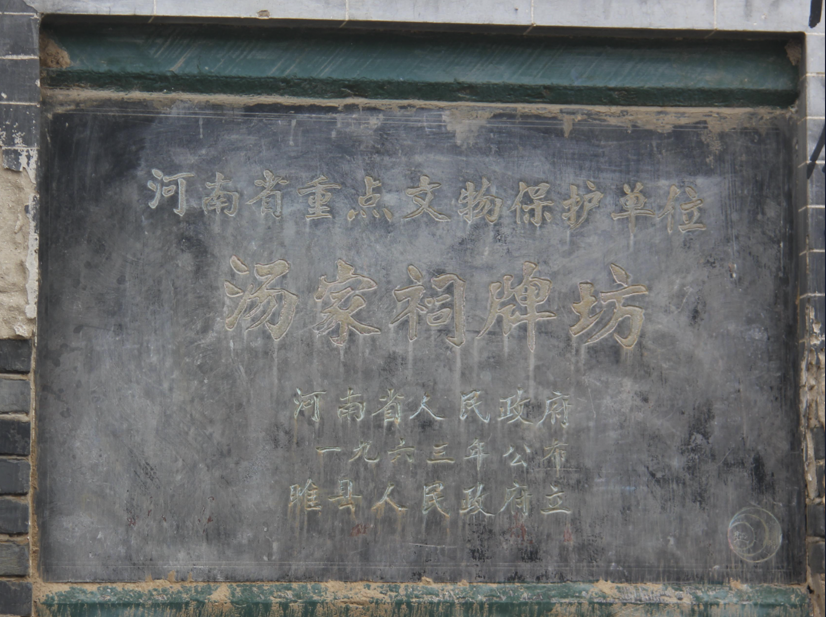 河南省重点文物保护单位
汤家祠牌坊
河南省人民政府
一九六三年公布
睢县人民政府立